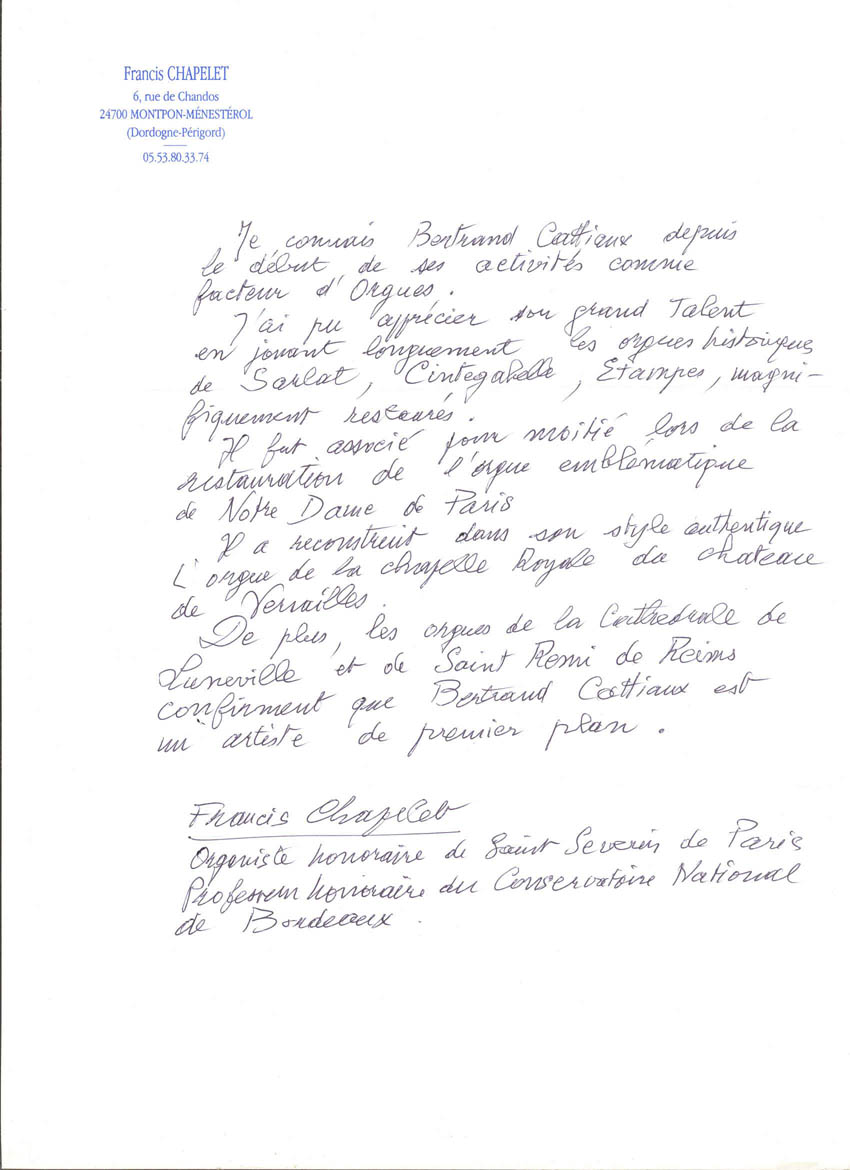 Francis CHAPELET
6, rue de Chandos
24700 MONTPON-MÉNESTÉROL
(Dordogne-Périgord)
05.53.80.33.74
Je connais Bertrand Cattiaux depuis
le début de ses activités comme
facteur d'Orgues.
J'ai pu apprécier son grand Talent
en jouant longuement les orgues historiques
de Sarlat, Cintegabelle, Etampes, magni-
fiquement restaurés.
Il fut associé pour moitié lors de la
restauration de l'orgue emblématique
de Notre Dame de Paris
Il a reconstruit dans son style authentique
L'orgue de la chapelle Royale du chateau
de Versailles.
De plus, les orgues de la Cathédrale de
Luneville et de Saint Remi de Reims
confirment que Bertrand Cattiaux est
un artiste de premier plan.
Francis Chapelet
Organiste honoraire de Saint Severin de Paris
Professeur honoraire du Conservatoire National
de Bordeaux.